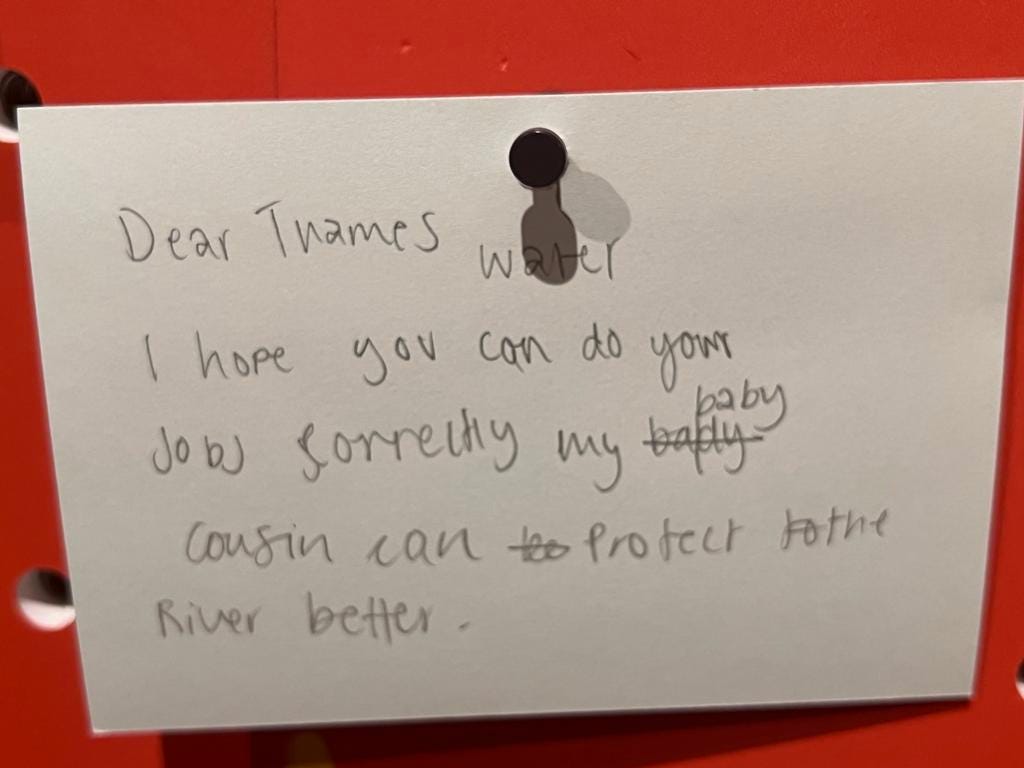 Dear Thames water
I hope you can do your
Jobs correctly my baby
cousin can protect the
River better.